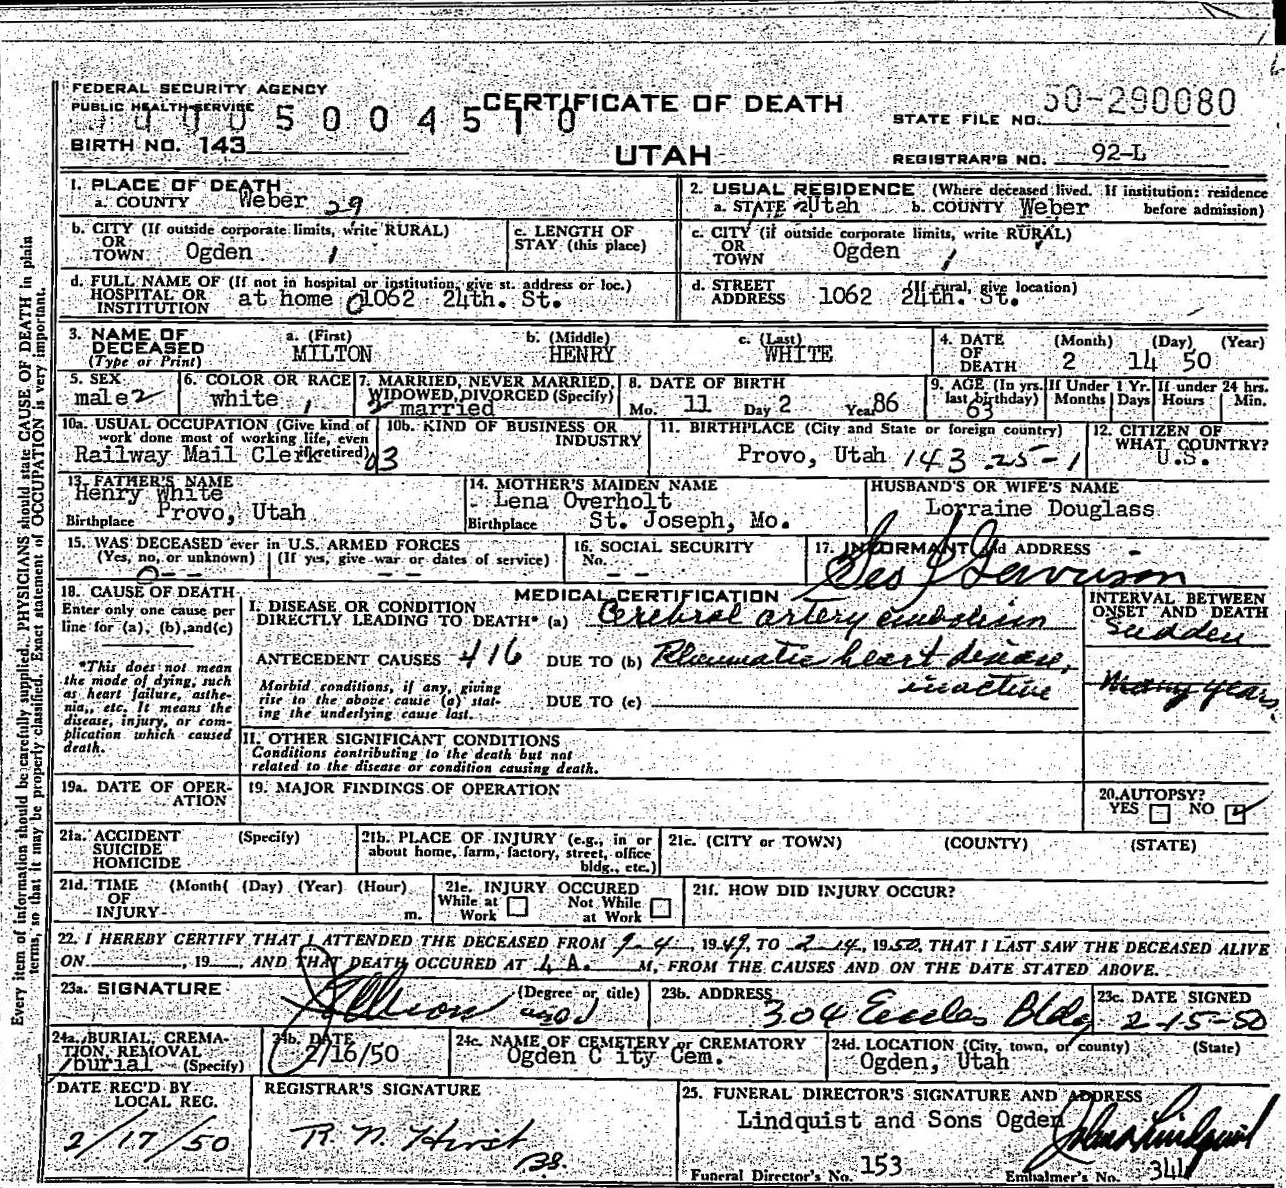 FEDERAL SECURITY AGENCY
PUBLIC HEALTH SERVICE
CERTIFICATE OF DEATH
UTAH
5004510
BIRTH NO. 143
STATE FILE NO. 50-290080
REGISTRAR'S NO. 92-L
Every item of information should be carefully supplied. PHYSICIANS should state CAUSE OF DEATH in plain
terms, so that it may be properly classified. Exact statement of OCCUPATION is very important.
1. PLACE OF DEATH
a. COUNTY Weber 29
2. USUAL RESIDENCE (Where deceased lived. If institution: residence
a. STATE Utah b. COUNTY Weber before admission)
b. CITY (If outside corporate limits, write RURAL)
OR
TOWN Ogden 1
c. LENGTH OF
STAY (this place)
c. CITY (if outside corporate limits, write RURAL)
OR
TOWN Ogden 1
d. FULL NAME OF (If not in hospital or institution, give st. address or loc.)
HOSPITAL OR
INSTITUTION at home 0 1062 24th. St.
d. STREET (If rural, give location)
ADDRESS 1062 24th. St.
3. NAME OF
DECEASED
(Type or Print)
a. (First)
MILTON
b. (Middle)
HENRY
c. (Last)
WHITE
4. DATE (Month) (Day) (Year)
OF
DEATH 2 14 50
5. SEX
male 2
6. COLOR OR RACE
white 1
7. MARRIED, NEVER MARRIED,
WIDOWED, DIVORCED (Specify)
2 married
8. DATE OF BIRTH
Mo. 11 Day 2 Year 86
9. AGE (In yrs.
last birthday)
63
If Under 1 Yr.
Months Days
If under 24 hrs.
Hours Min.
10a. USUAL OCCUPATION (Give kind of
work done most of working life, even
if retired)
Railway Mail Clerk 03
10b. KIND OF BUSINESS OR
INDUSTRY
11. BIRTHPLACE (City and State or foreign country)
Provo, Utah 143 25-1
12. CITIZEN OF
WHAT COUNTRY?
U.S.
13. FATHER'S NAME
Henry White
Birthplace Provo, Utah
14. MOTHER'S MAIDEN NAME
Lena Overholt
Birthplace St. Joseph, Mo.
HUSBAND'S OR WIFE'S NAME
Lorraine Douglass
15. WAS DECEASED ever in U.S. ARMED FORCES
(Yes, no, or unknown) (If yes, give war or dates of service)
0-- --
16. SOCIAL SECURITY
No. --
17. INFORMANT and ADDRESS
18. CAUSE OF DEATH
Enter only one cause per
line for (a), (b), and(c)
*This does not mean
the mode of dying, such
as heart failure, asthe-
nia,, etc. It means the
disease, injury, or com-
plication which caused
death.
MEDICAL CERTIFICATION
INTERVAL BETWEEN
ONSET AND DEATH
I. DISEASE OR CONDITION
DIRECTLY LEADING TO DEATH* (a) Cerebral artery embolism
Sudden
ANTECEDENT CAUSES 416 DUE TO (b) Rheumatic heart disease,
inactive
Many years.
Morbid conditions, if any, giving
rise to the above cause (a) stat-
ing the underlying cause last.
DUE TO (c)
II. OTHER SIGNIFICANT CONDITIONS
Conditions contributing to the death but not
related to the disease or condition causing death.
19a. DATE OF OPER-
ATION
19. MAJOR FINDINGS OF OPERATION
20. AUTOPSY?
YES NO
21a. ACCIDENT (Specify)
SUICIDE
HOMICIDE
21b. PLACE OF INJURY (e.g., in or
about home, farm, factory, street, office
bldg., etc.)
21c. (CITY or TOWN) (COUNTY) (STATE)
21d. TIME (Month( (Day) (Year) (Hour)
OF
INJURY m.
21e. INJURY OCCURED
While at Not While
Work at Work
21f. HOW DID INJURY OCCUR?
22. I HEREBY CERTIFY THAT I ATTENDED THE DECEASED FROM 9-4, 1949, TO 2-14, 1950, THAT I LAST SAW THE DECEASED ALIVE
ON , 19 , AND THAT DEATH OCCURED AT 4 A. M, FROM THE CAUSES AND ON THE DATE STATED ABOVE.
23a. SIGNATURE (Degree or title)
23b. ADDRESS
304 Eccles Bldg
23c. DATE SIGNED
2-15-50
24a. BURIAL, CREMA-
TION, REMOVAL
burial (Specify)
24b. DATE
2/16/50
24c. NAME OF CEMETERY or CREMATORY
Ogden C ity Cem.
24d. LOCATION (City, town, or county) (State)
Ogden, Utah
DATE REC'D BY
LOCAL REG.
2/17/50
REGISTRAR'S SIGNATURE
R. N. Hirst
25. FUNERAL DIRECTOR'S SIGNATURE AND ADDRESS
Lindquist and Sons Ogden
John A Lindquist
Funeral Director's No. 153 Embalmer's No. 344